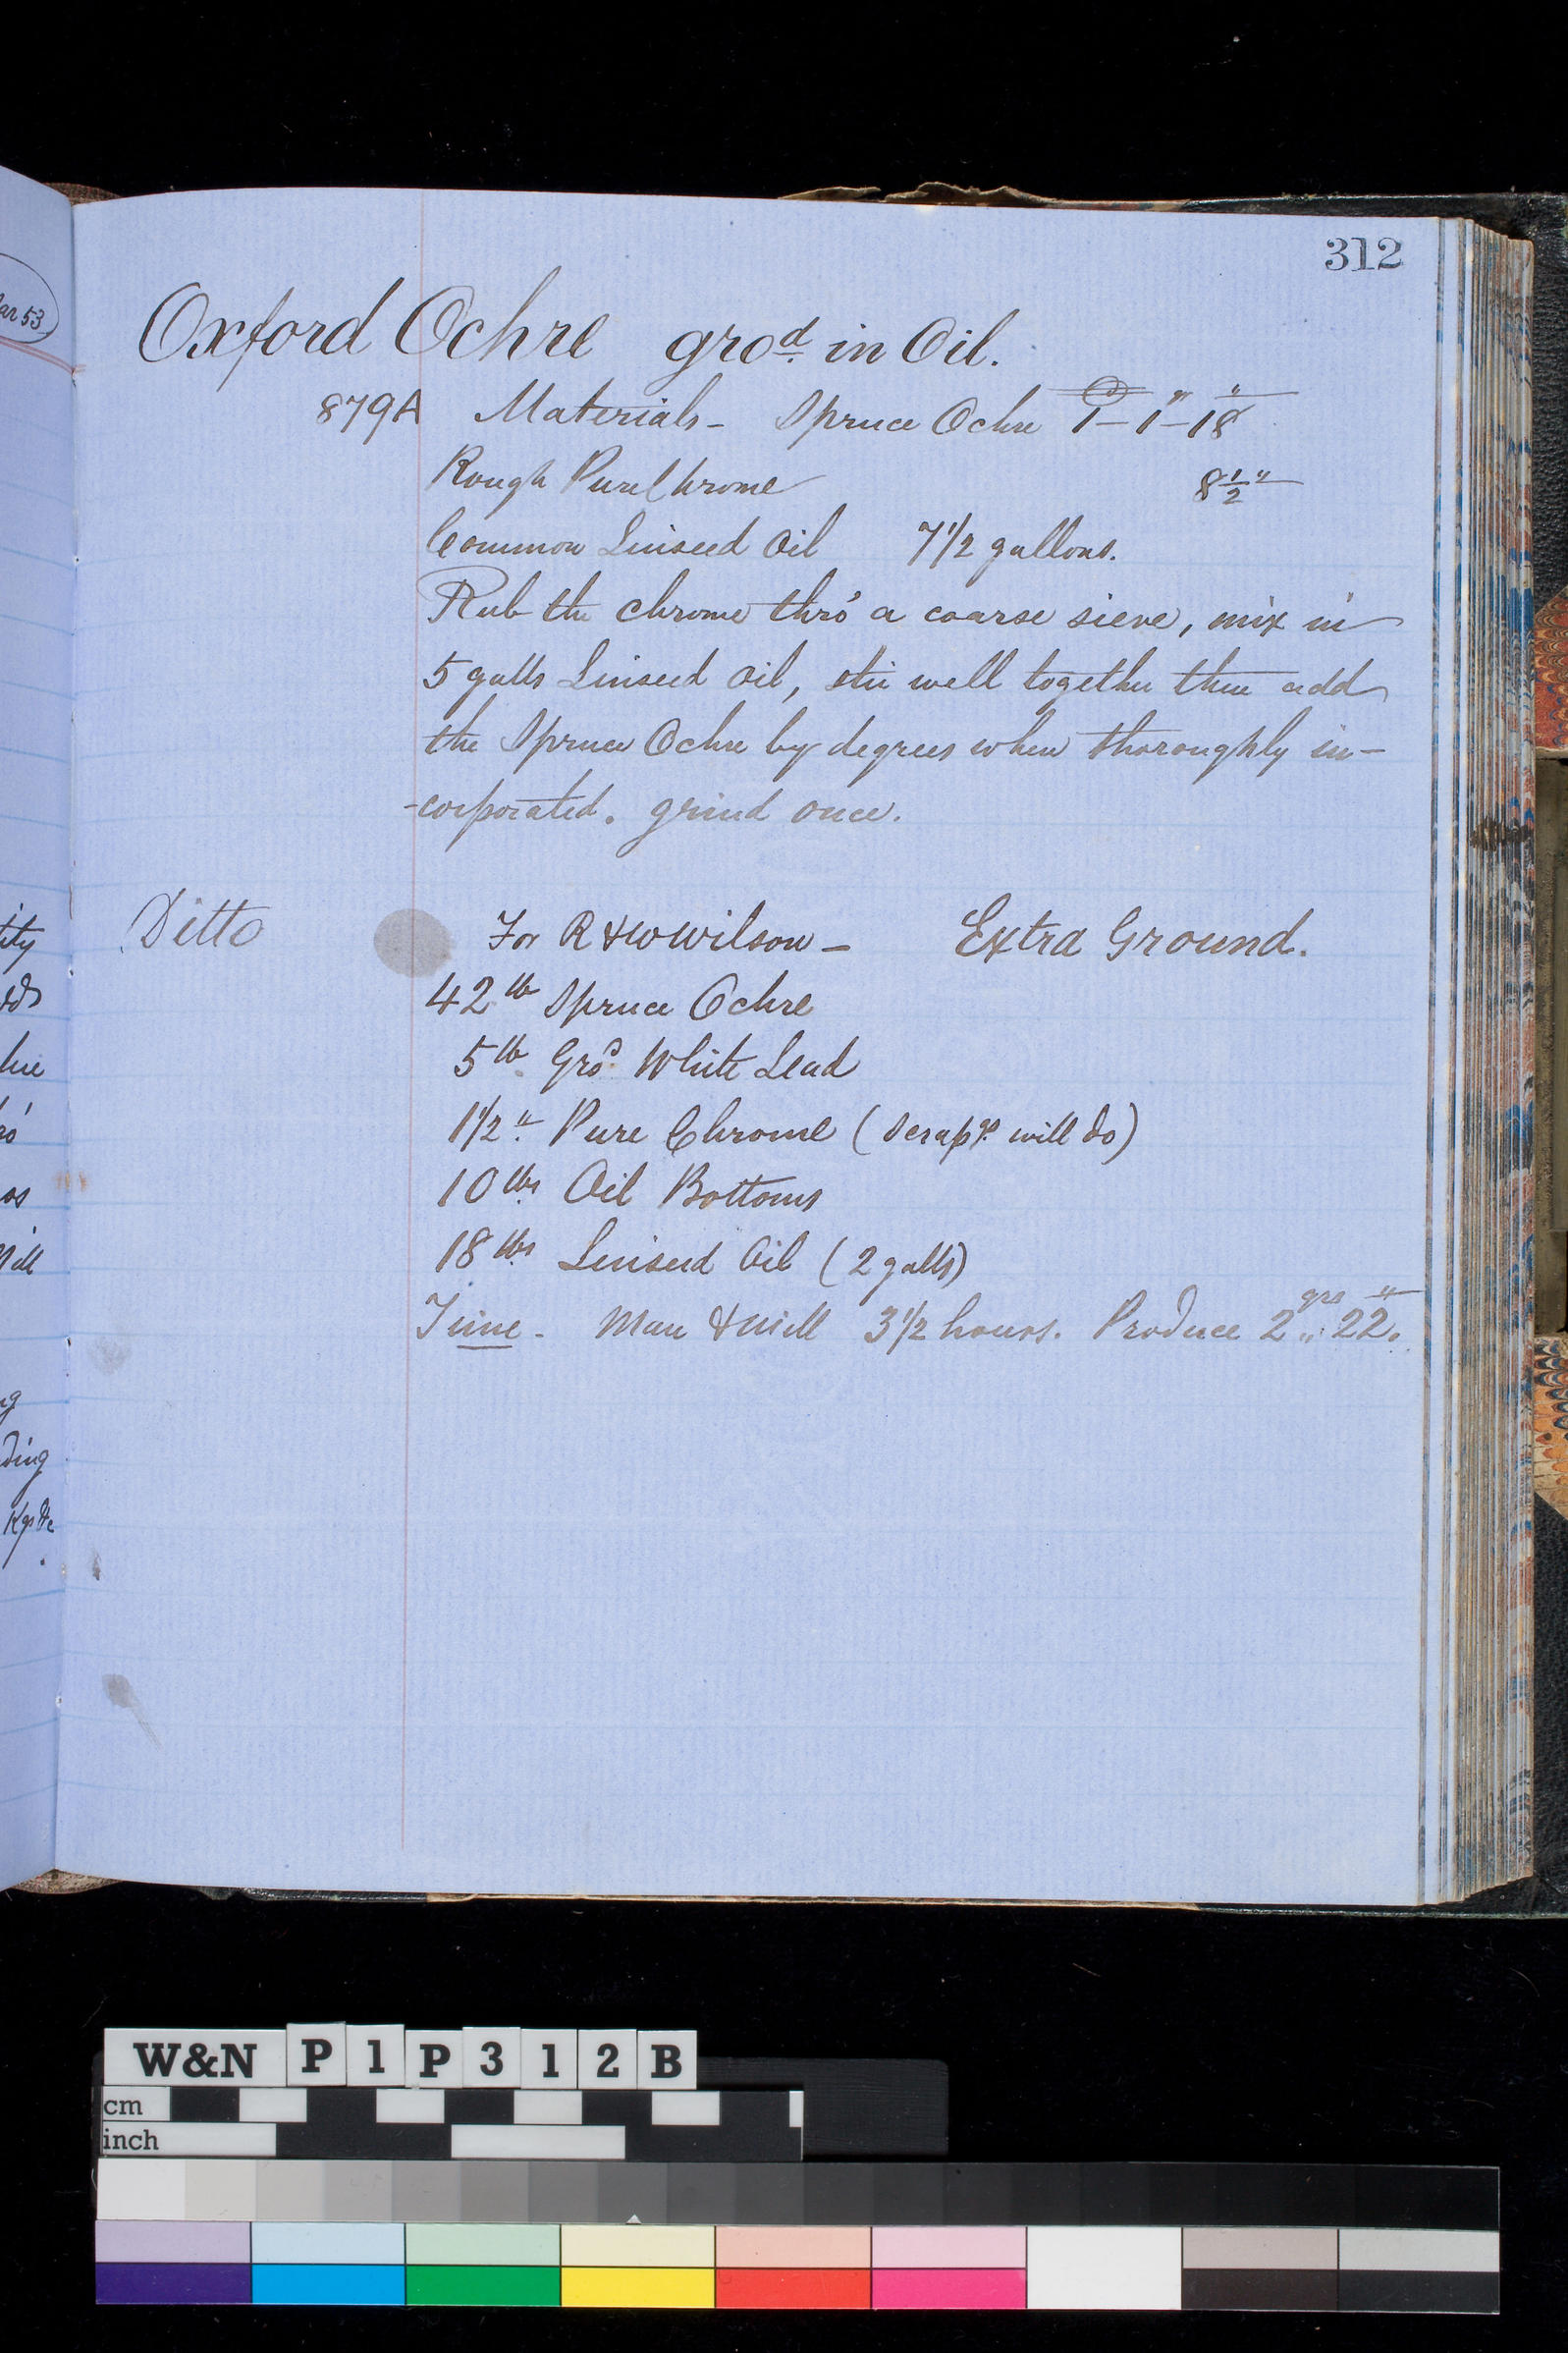 312
Oxford Ochre gro.d in Oil.
879A Materials - Spruce Ochre 1 - 1 - 18
Rough Pure Chrome 8 1/2 "
Common Linseed Oil 7 1/2 gallons.
Rub the chrome thro' a coarse sieve, mix in
5 galls Linseed oil, stir well together then add
the Spruce Ochre by degrees when thoroughly in-
-corporated. grind once.
Ditto For R & W Wilson - Extra Ground.
42 lb Spruce Ochre
5 lb Gro.d White Lead
1 1/2 " Pure Chrome ( Scrapgs will do)
10 lbs Oil Bottoms
18 lbs Linseed Oil ( 2 galls)
Time - Man & Mill 3 1/2 hours. Produce 2 qrs 22.
ar 53
ity
hue
os
Mill
ng
ding
W&N P1P312B
cm
inch